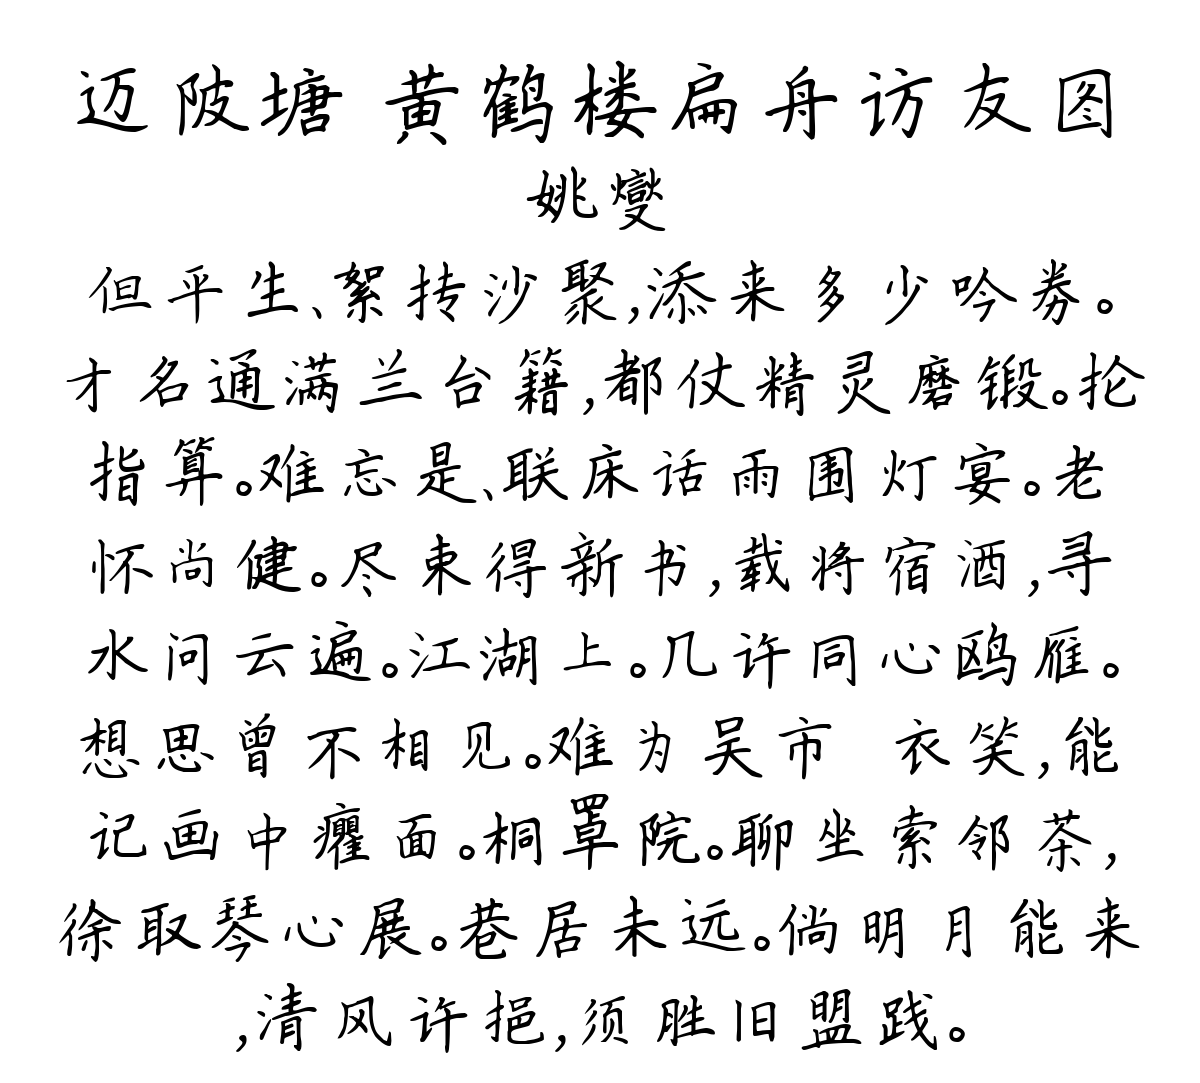 迈陂塘 黄鹤楼扁舟访友图
姚燮
但平生、絮抟沙聚,添来多少吟券。
才名通满兰台籍,都仗精灵磨锻。抡
指算。难忘是、联床话雨围灯宴。老
怀尚健。尽束得新书,载将宿酒,寻
水问云遍。江湖上。几许同心鸥雁。
想思曾不相见。难为吴市 衣笑,能
记画中癯面。桐罩院。聊坐索邻茶,
徐取琴心展。巷居未远。倘明月能来
,清风许挹,须胜旧盟践。